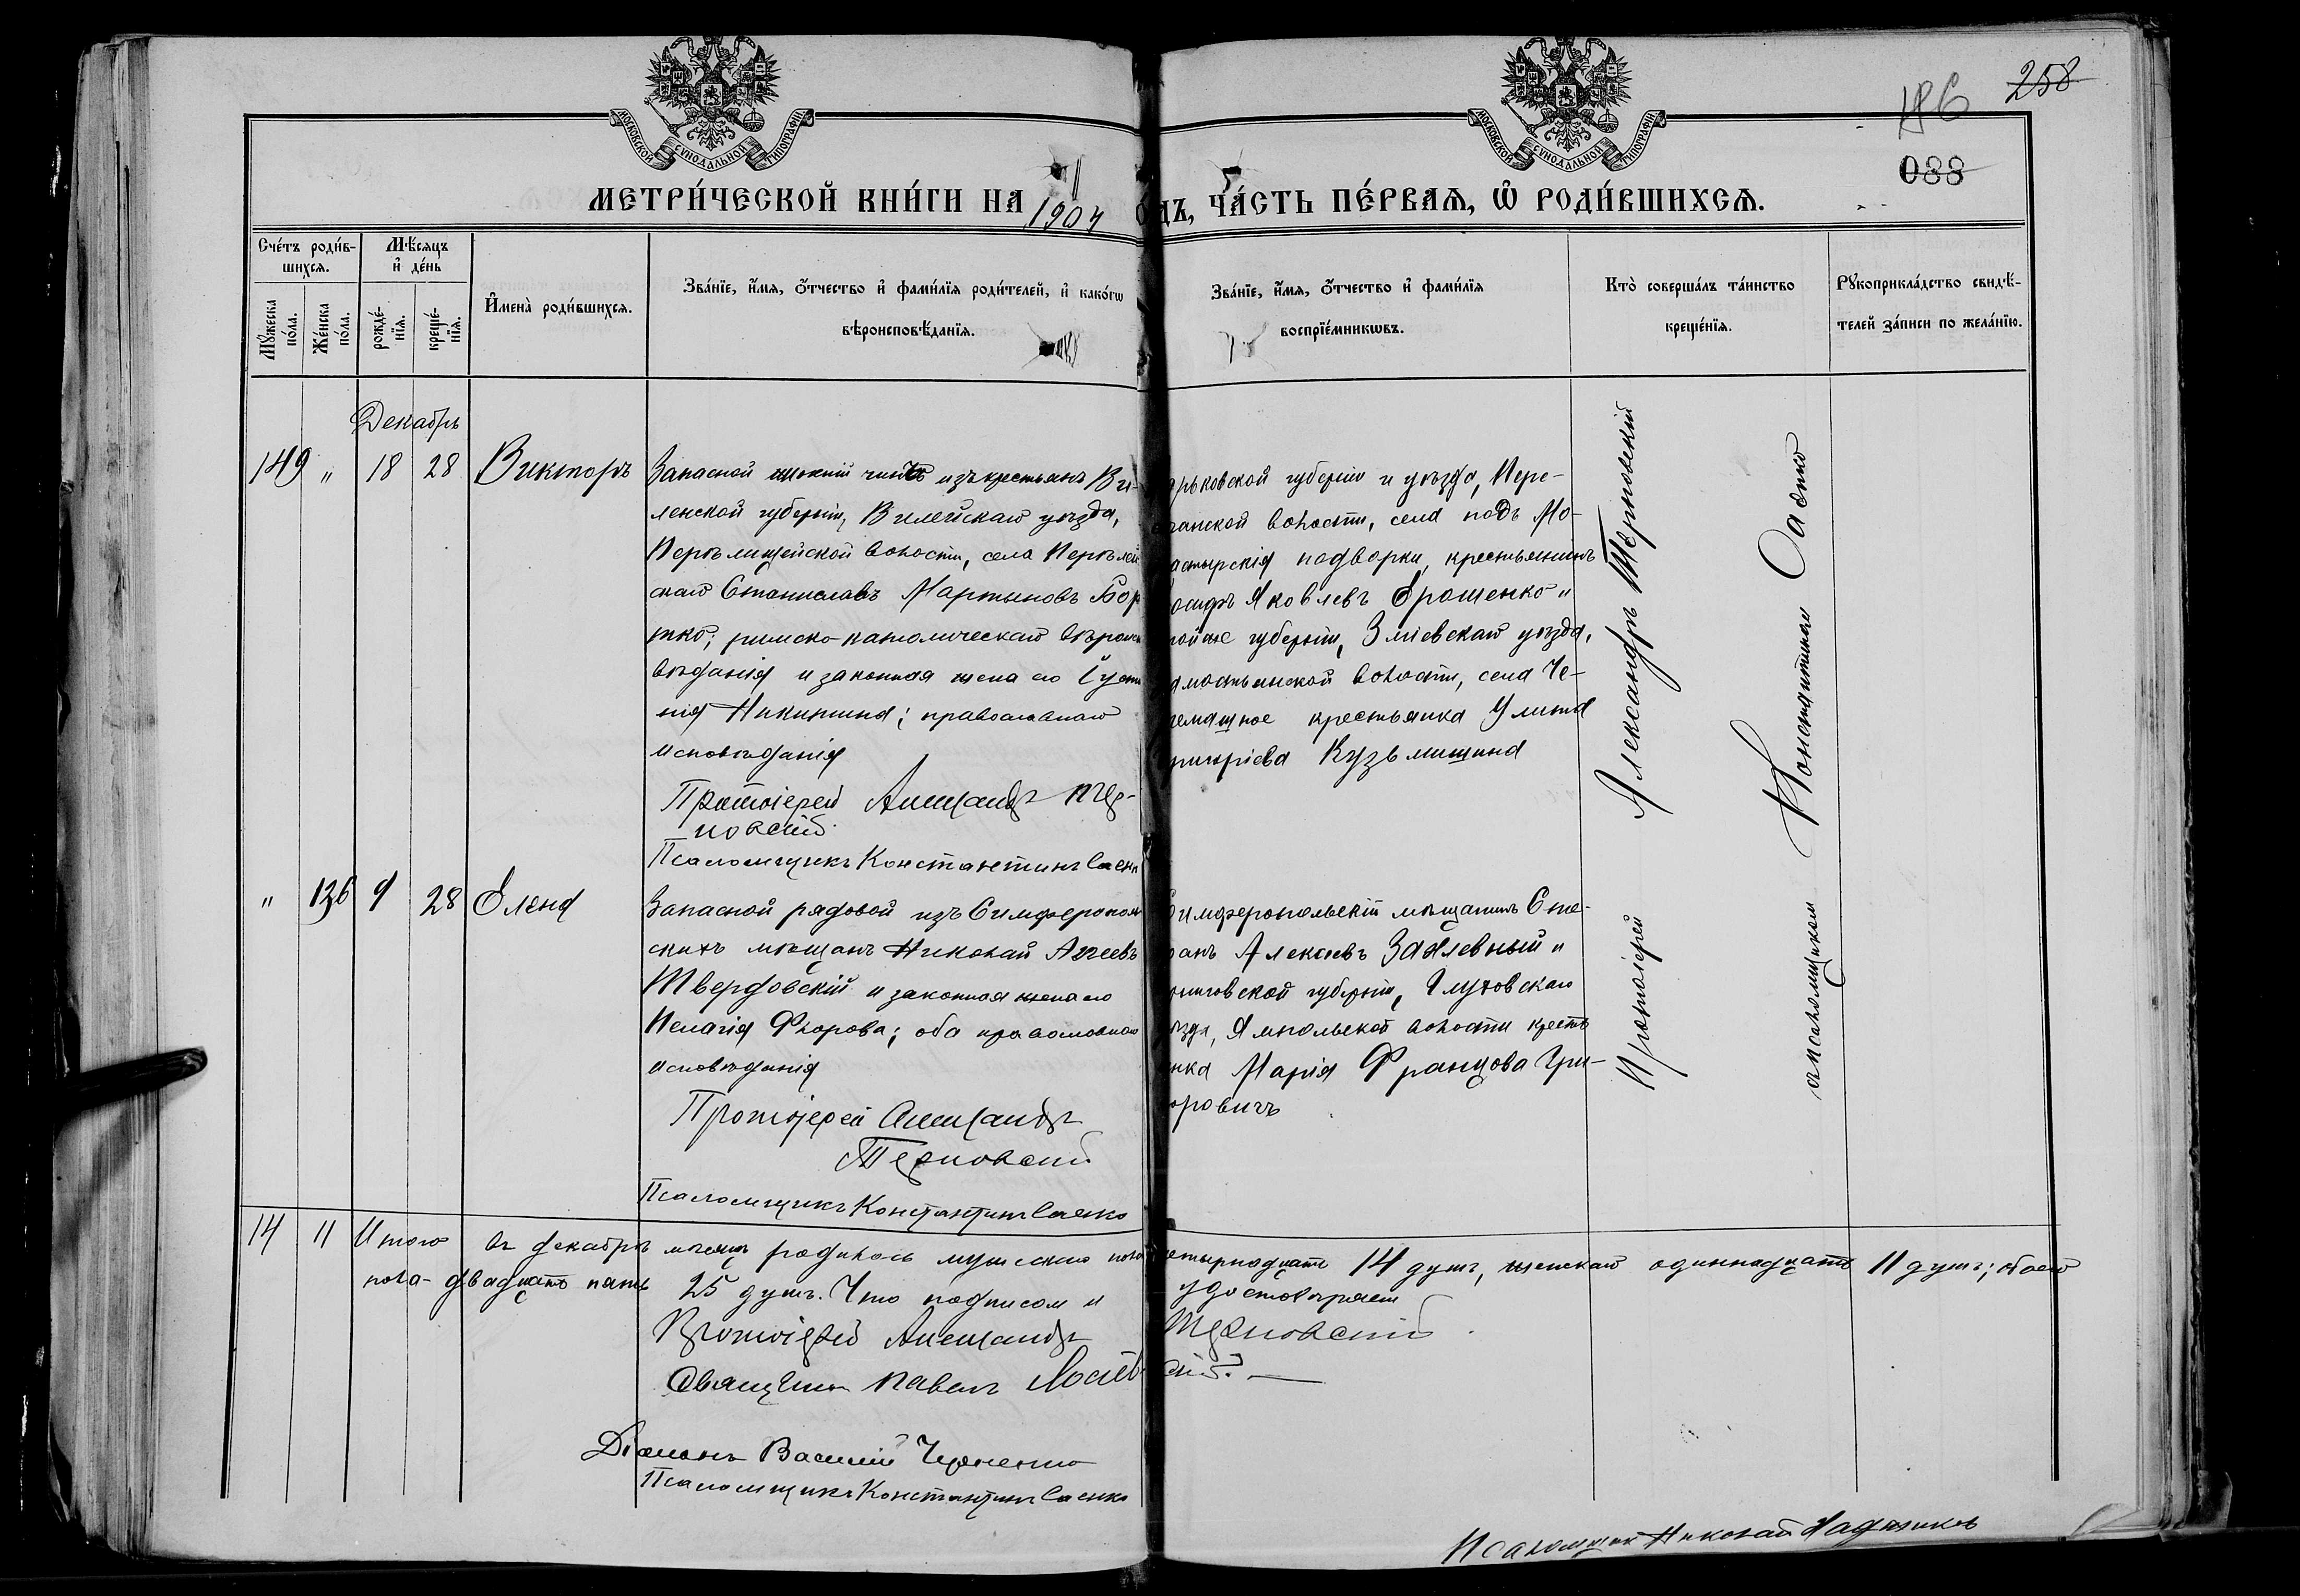 МОСКОВСКОЙ СѴНОДАЛЬНОЙ ТИПОГРАФІИ
МОСКОВСКОЙ СѴНОДАЛЬНОЙ ТИПОГРАФІИ
186 258
088
МЕТРИ́ЧЕСКОЙ КНИ́ГИ НА 1904 ОДЪ, ЧА́СТЬ ПЕ́РВАЯ, Ѽ РОДИ́ВШИХСЯ.
Счетъ роди́вшихся.
Мѣ́сяцъ и҆ де́нь
Мꙋжеска по́ла.
Же́нска по́ла.
рожде́нїя.
креще́нїя.
И҆мена̀ роди́вшихся.
Зва́нїе, и҆́мя, ѻ҆́тчество и҆ фами́лїя роди́телей, и҆ како́гѡ
вѣроисповѣ́данїя.
Зва́нїе, и҆́мя, ѻ҆́тчество и҆ фами́лїя
воспрїе́мникѡвъ.
Кто̀ соверша́лъ та́инство
креще́нїя.
Рꙋкоприкла́дство свидѣ́-
телей за́писи по жела́нїю.
Декабрь
149 " 18 28 Викторъ
Запасной нижній чинъ изъ крестьянъ Ви-
ленской губерніи, Вилейскаго уѣзда,
волости, села
скаго Станиславъ Мартыновъ Бор
тко; римско-католическаго вѣроиспо
вѣданія и законная жена его Іусти
нія Никитина; православнаго
исповѣданія
Протоіерей Александръ Тер-
новскій
Псаломщикъ Константинъ Саенк
арьковской губерніи и уѣзда, Пере-
чанской волости, села подъ Мо-
астырскія подворки, крестьянинъ
осифъ Яковлевъ Ерошенко и
той же губерніи, Зміевскаго уѣзда,
амостьянской волости, села Че-
темашное крестьянка Улита
ригоріева Кузьмишина
Протоіерей Александръ Терновскій
псаломщикомъ Константиномъ Саенко
" 136 9 28 Елена
Запасной рядовой изъ Симферополь
скихъ мѣщанъ Николай Агеевъ
Твердовскій и законная жена его
Пелагія Флорова; оба православнаго
исповѣданія
Протоіерей Александръ
Терновскій
Псаломщикъ Константинъ Саенко
Симферопольскій мѣщанинъ Сте-
фанъ Алексѣевъ и
рниговской губерніи, Глуховскаго
ѣзда, Ямпольской волости кресть
нка Марія Францова Гри-
оровичъ
14 11 Итого въ декабрѣ мѣсяцѣ родилось мужскаго пола четырнадцать 14 душъ, женскаго одиннадцать 11 душъ; обоего
пола - двадцать пять 25 душъ. Что подписомъ и удостовѣряемъ
Протоіерей Александръ Терновскій
Священникъ Павелъ
Діаконъ Василій
Псаломщикъ Константинъ Саенко
Псаломщик Николай